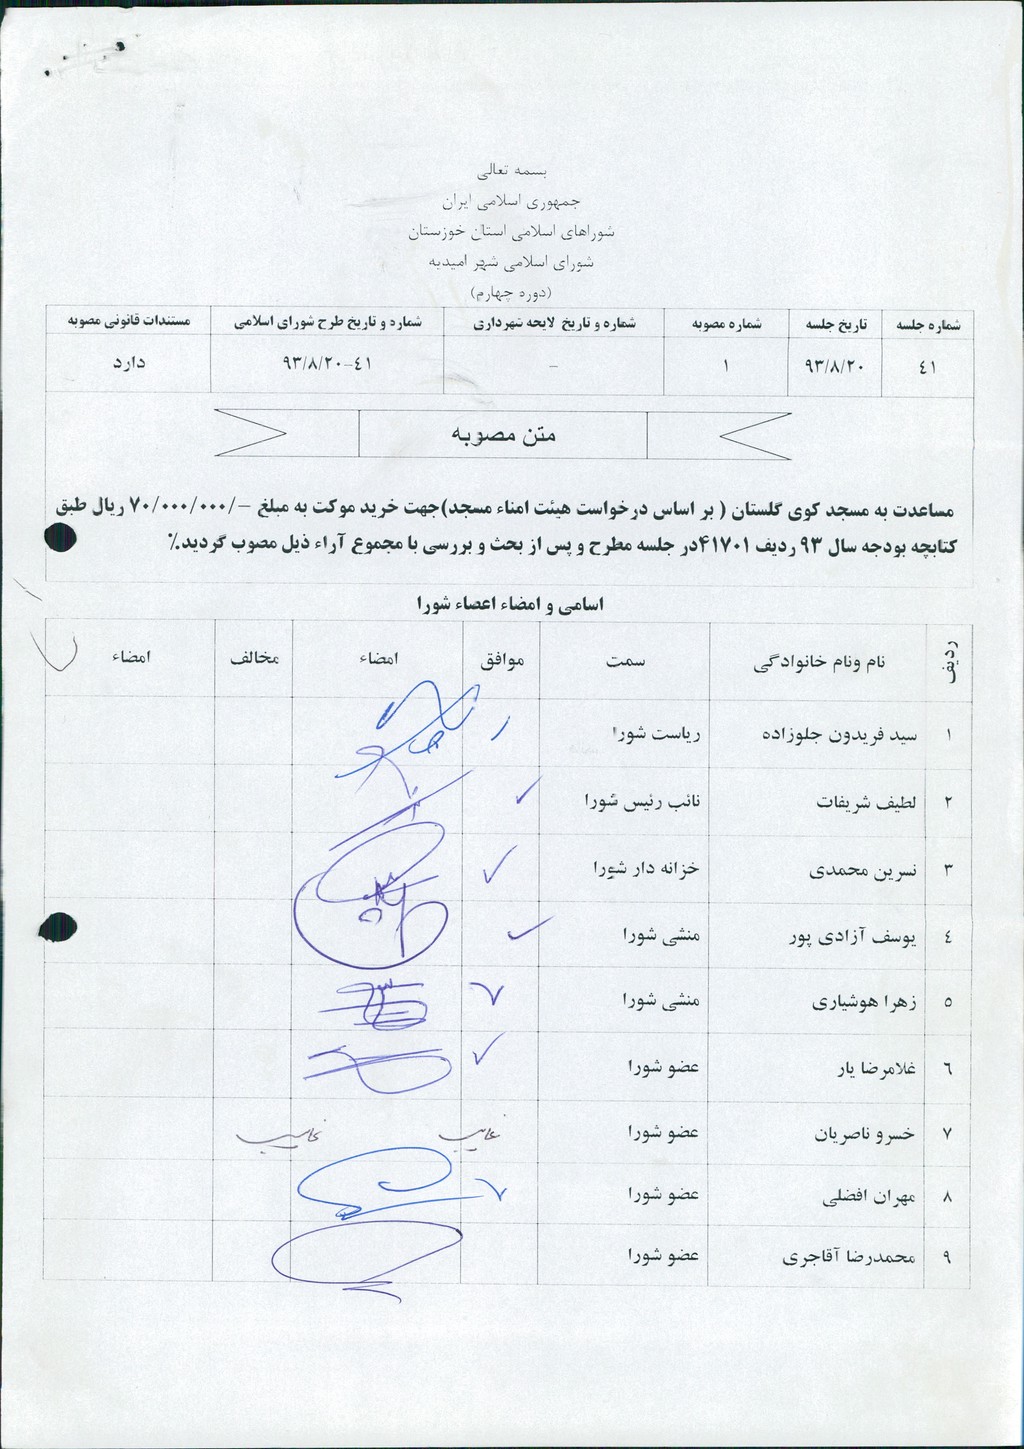 بسمه تعالی
جمهوری اسلامی ایران
شوراهای اسلامی استان خوزستان
شورای اسلامی شهر امیدیه
(دوره چهارم)
شماره جلسه تاریخ جلسه شماره مصوبه شماره و تاریخ لایحه شهرداری شماره و تاریخ طرح شورای اسلامی مستندات قانونی مصوبه
٤١ ٩٣/٨/٢٠ ١ - ٤١-٩٣/٨/٢٠ دارد
متن مصوبه
مساعدت به مسجد کوی گلستان ( بر اساس درخواست هیئت امناء مسجد)جهت خرید موکت به مبلغ -/۷۰/۰۰۰/۰۰۰ ریال طبق
کتابچه بودجه سال ۹۳ ردیف ۴۱۷۰۱در جلسه مطرح و پس از بحث و بررسی با مجموع آراء ذیل مصوب گردید.٪
اسامی و امضاء اعضاء شورا
ردیف نام ونام خانوادگی سمت موافق امضاء مخالف امضاء
١ سید فریدون جلوزاده ریاست شورا
٢ لطیف شریفات نائب رئیس شورا
٣ نسرین محمدی خزانه دار شورا
٤ یوسف آزادی پور منشی شورا
٥ زهرا هوشیاری منشی شورا
٦ غلامرضا یار عضو شورا
٧ خسرو ناصریان عضو شورا غایب غایب
٨ مهران افضلی عضو شورا
٩ محمدرضا آقاجری عضو شورا